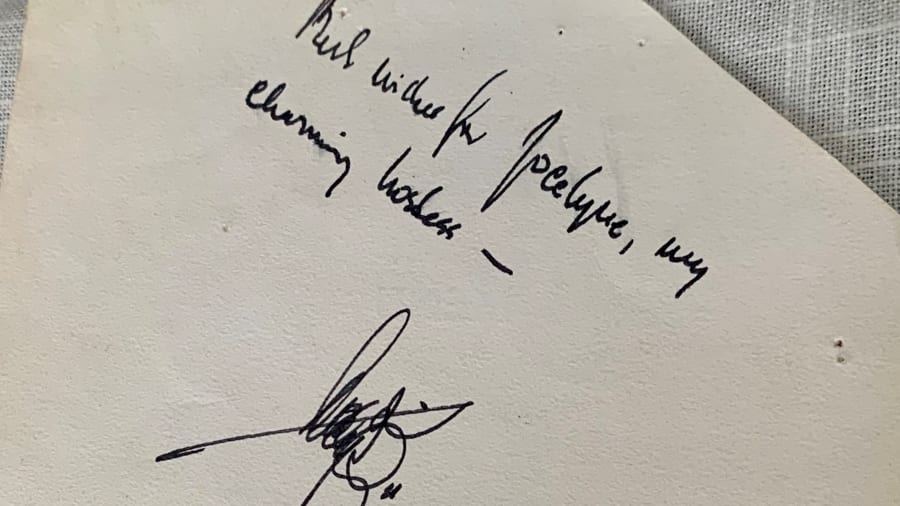 Best wishes for Jocelyne, my
charming hostess –